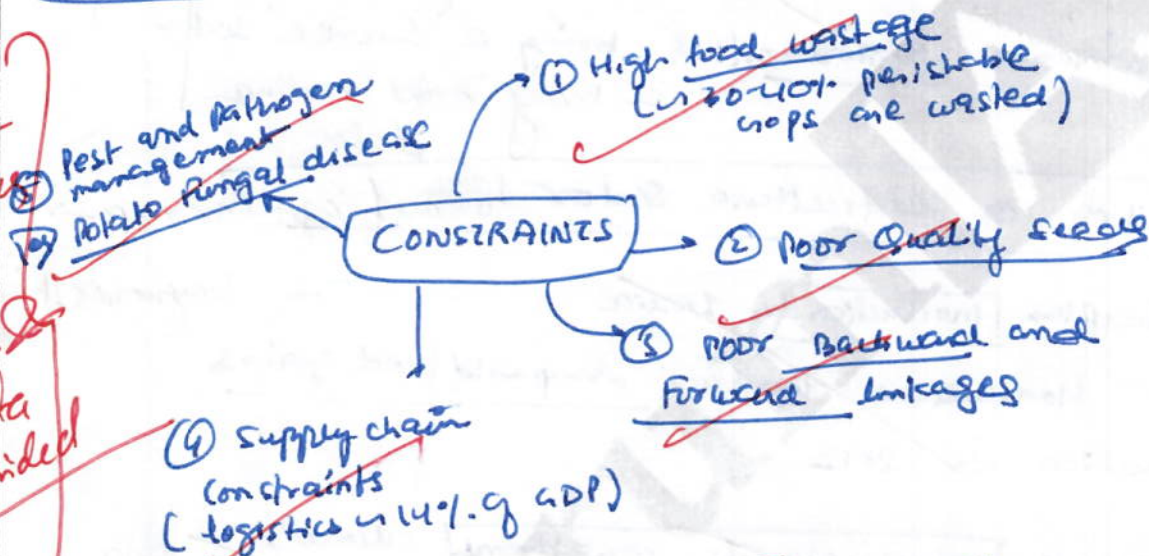 CONSTRAINTS
① High food wastage
(~ 30-40% perishable
crops are wasted)
② Poor Quality Seeds
③ Poor Backward and
Forward linkages
④ Supply chain
constraints
(logistics ~ 14% of GDP)
⑤ Pest and pathogen
management
eg Potato Fungal disease